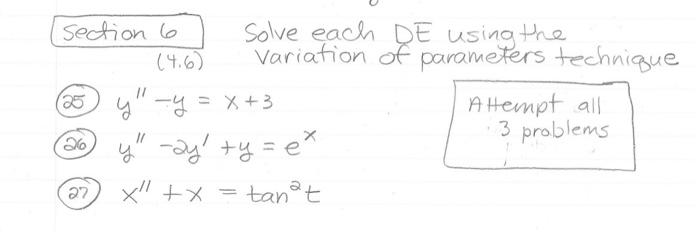 Section 6
(4.6)
Solve each DE using the
Variation of parameters technique
Attempt all
3 problems
25 y'' - y = x + 3
26 y'' - 2y' + y = e^x
27 x'' + x = tan²t